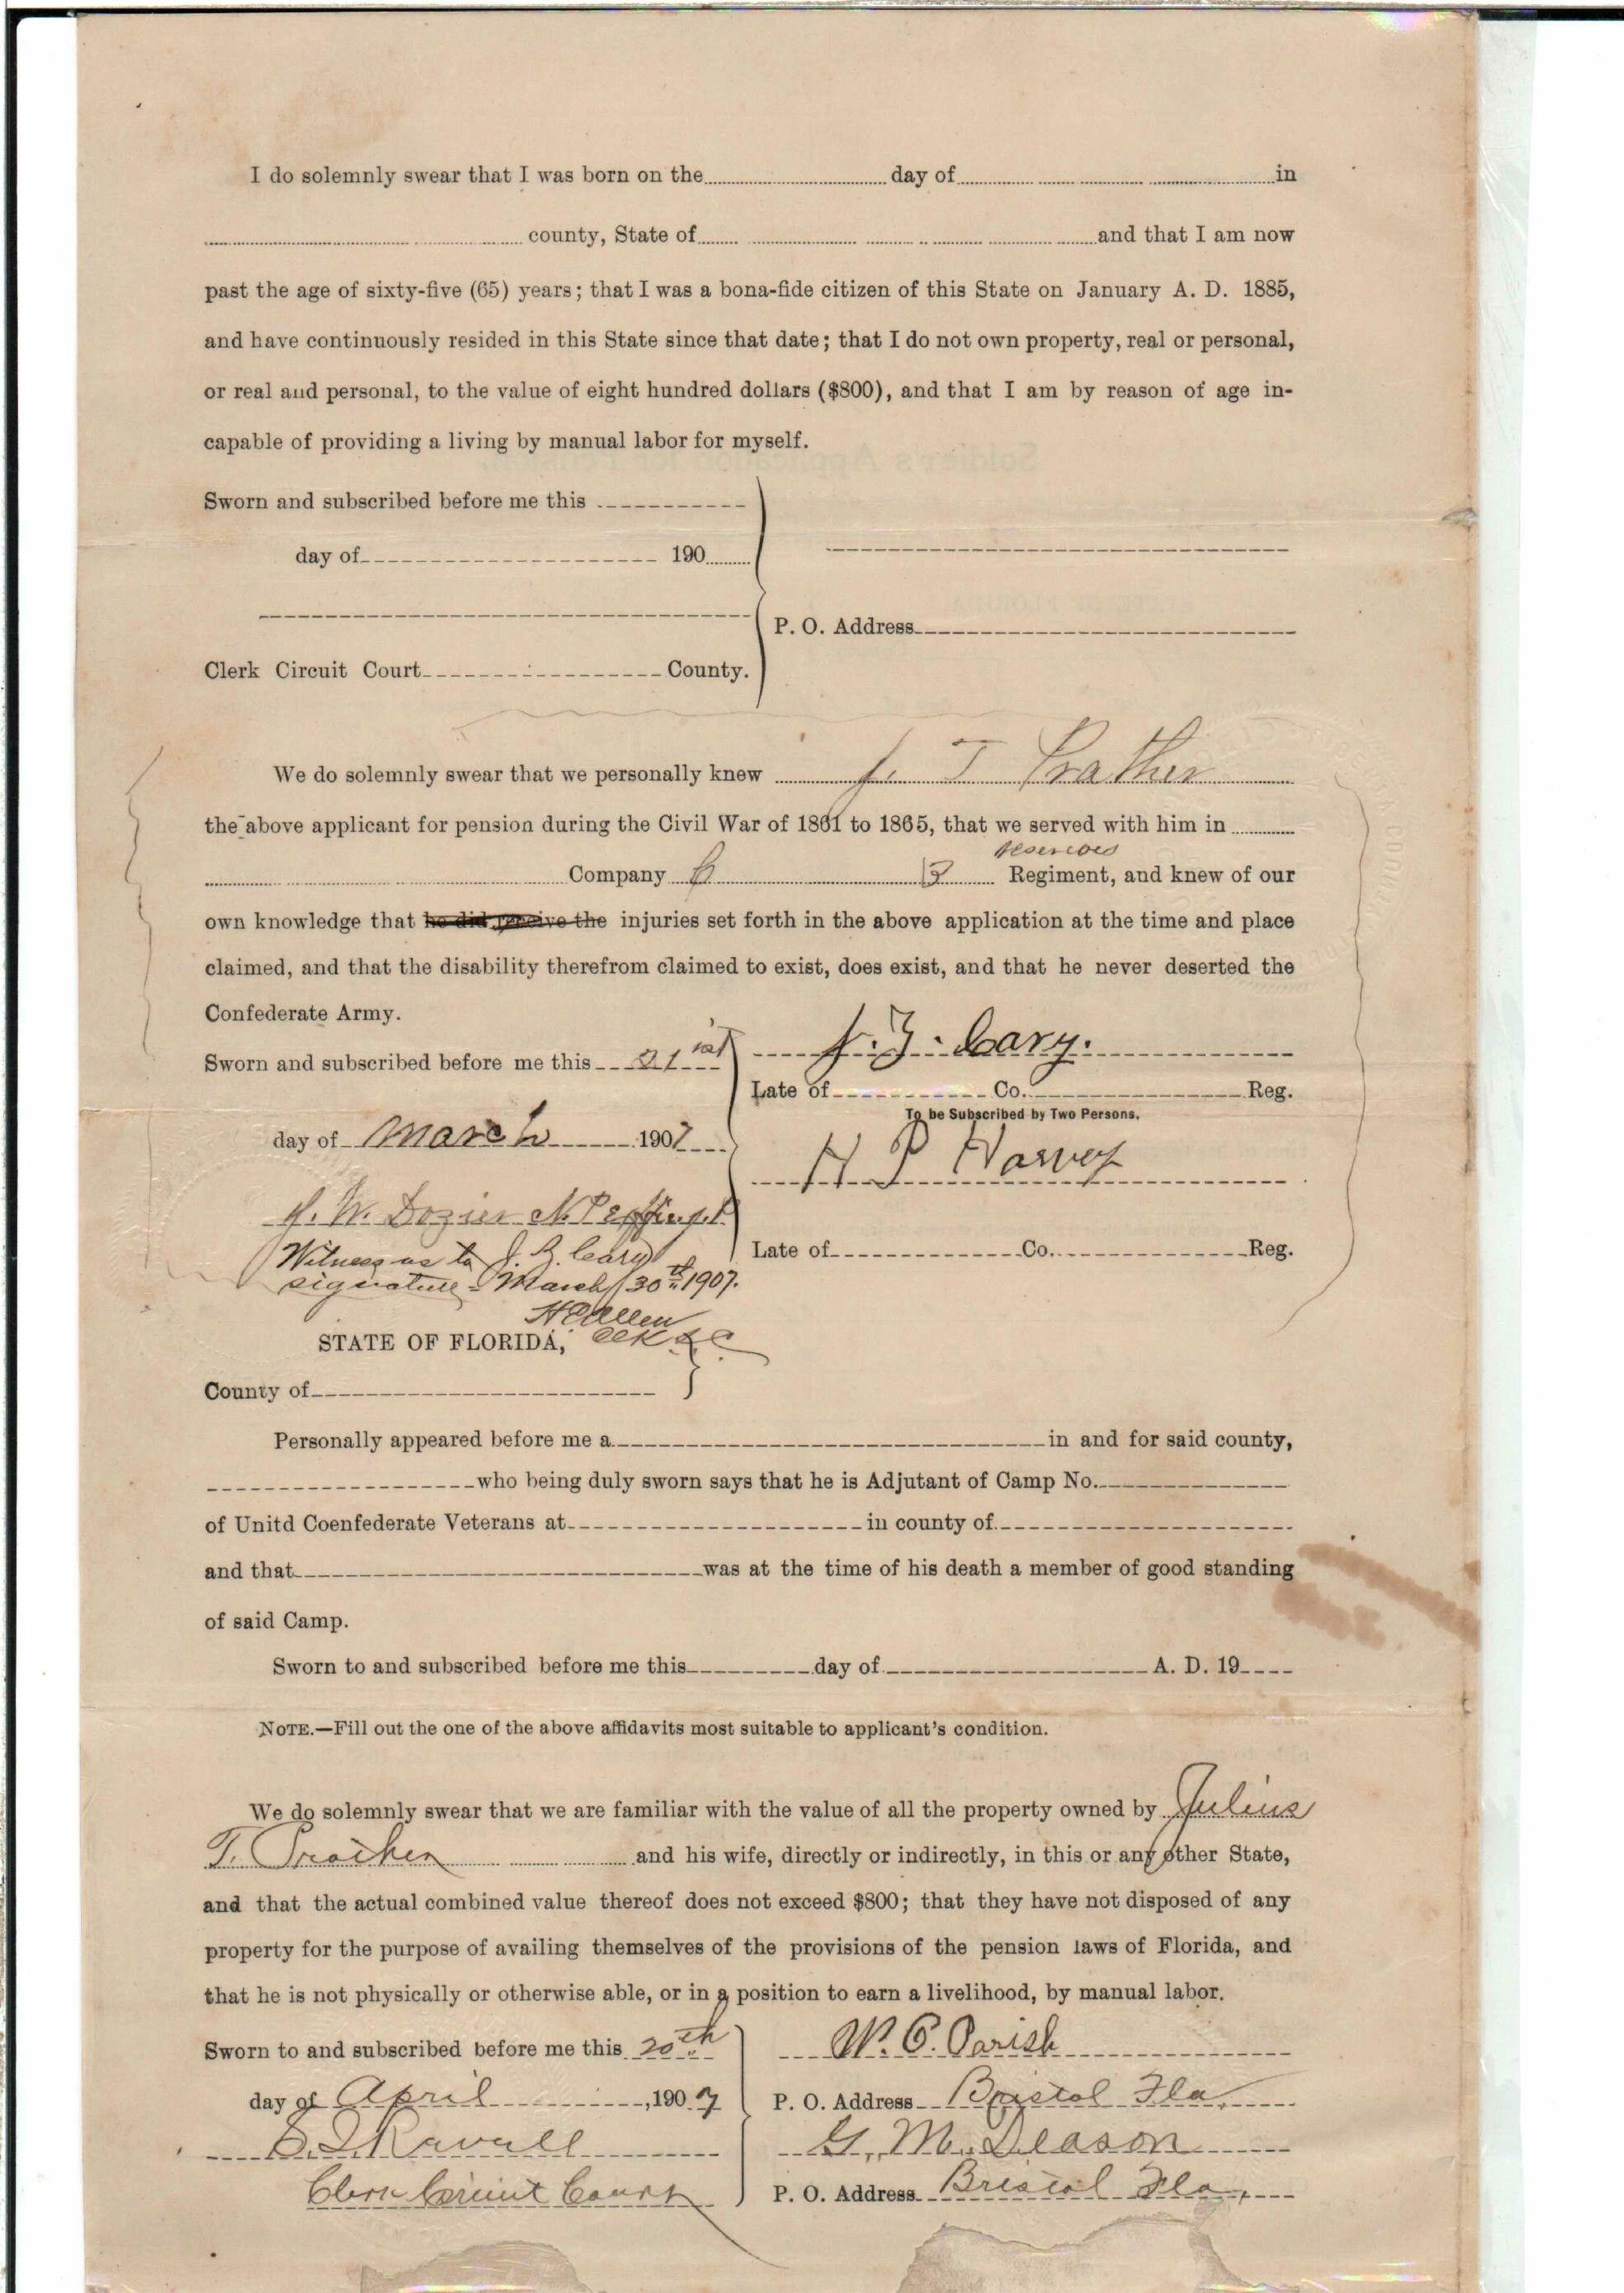 I do solemnly swear that I was born on the day of in
county, State of and that I am now
past the age of sixty-five (65) years; that I was a bona-fide citizen of this State on January A. D. 1885,
and have continuously resided in this State since that date; that I do not own property, real or personal,
or real and personal, to the value of eight hundred dollars ($800), and that I am by reason of age in-
capable of providing a living by manual labor for myself.
Sworn and subscribed before me this
day of 190
P. O. Address
Clerk Circuit Court County.
We do solemnly swear that we personally knew J. T Prather
the above applicant for pension during the Civil War of 1861 to 1865, that we served with him in
reserves
Company C Regiment, and knew of our
own knowledge that he did receive the injuries set forth in the above application at the time and place
claimed, and that the disability therefrom claimed to exist, does exist, and that he never deserted the
Confederate Army.
Sworn and subscribed before me this 21st J. Z. Cary.
Late of Co. Reg.
To be Subscribed by Two Persons.
day of March 1907
H P Harvey
J. W. Dozier N. P.
Witness as to J. Z. Cary
Late of Co. Reg.
signature - March 30th 1907.
H E Allen
STATE OF FLORIDA, Clk
County of
Personally appeared before me a in and for said county,
who being duly sworn says that he is Adjutant of Camp No.
of Unitd Coenfederate Veterans at in county of
and that was at the time of his death a member of good standing
of said Camp.
Sworn to and subscribed before me this day of A. D. 19
NOTE.—Fill out the one of the above affidavits most suitable to applicant's condition.
We do solemnly swear that we are familiar with the value of all the property owned by Julius
T. Prather and his wife, directly or indirectly, in this or any other State,
and that the actual combined value thereof does not exceed $800; that they have not disposed of any
property for the purpose of availing themselves of the provisions of the pension laws of Florida, and
that he is not physically or otherwise able, or in a position to earn a livelihood, by manual labor.
Sworn to and subscribed before me this 20th W. C. Parish
day of April, 1907 P. O. Address Bristol Fla.
G. M. Deason
Clerk Circuit Court P. O. Address Bristol Fla,